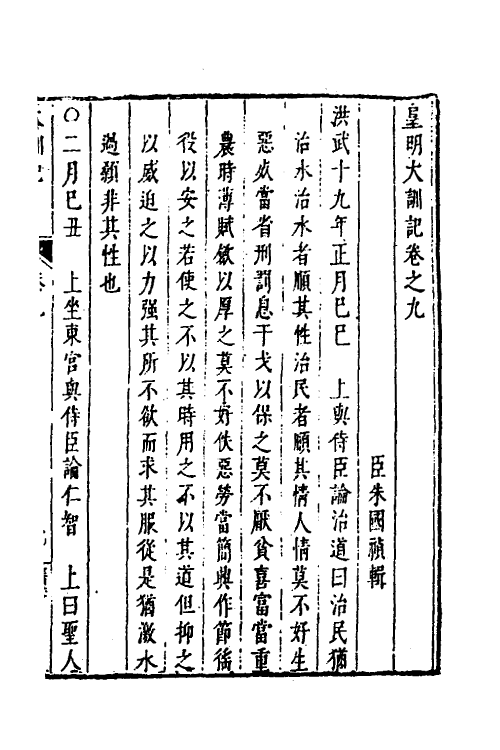 皇明大訓記卷之九
臣朱國禎輯
洪武十九年正月己巳　上與侍臣論治道曰治民猶
治水治水者順其性治民者順其情人情莫不好生
惡死當省刑罰息干戈以保之莫不厭貧喜富當重
農時薄賦斂以厚之莫不好佚惡勞當簡興作節徭
役以安之若使之不以其時用之不以其道但抑之
以威迫之以力强其所不欲而求其服從是猶激水
過顙非其性也
○二月己丑　上坐東宮與侍臣論仁智　上曰聖人
大訓記
卷九